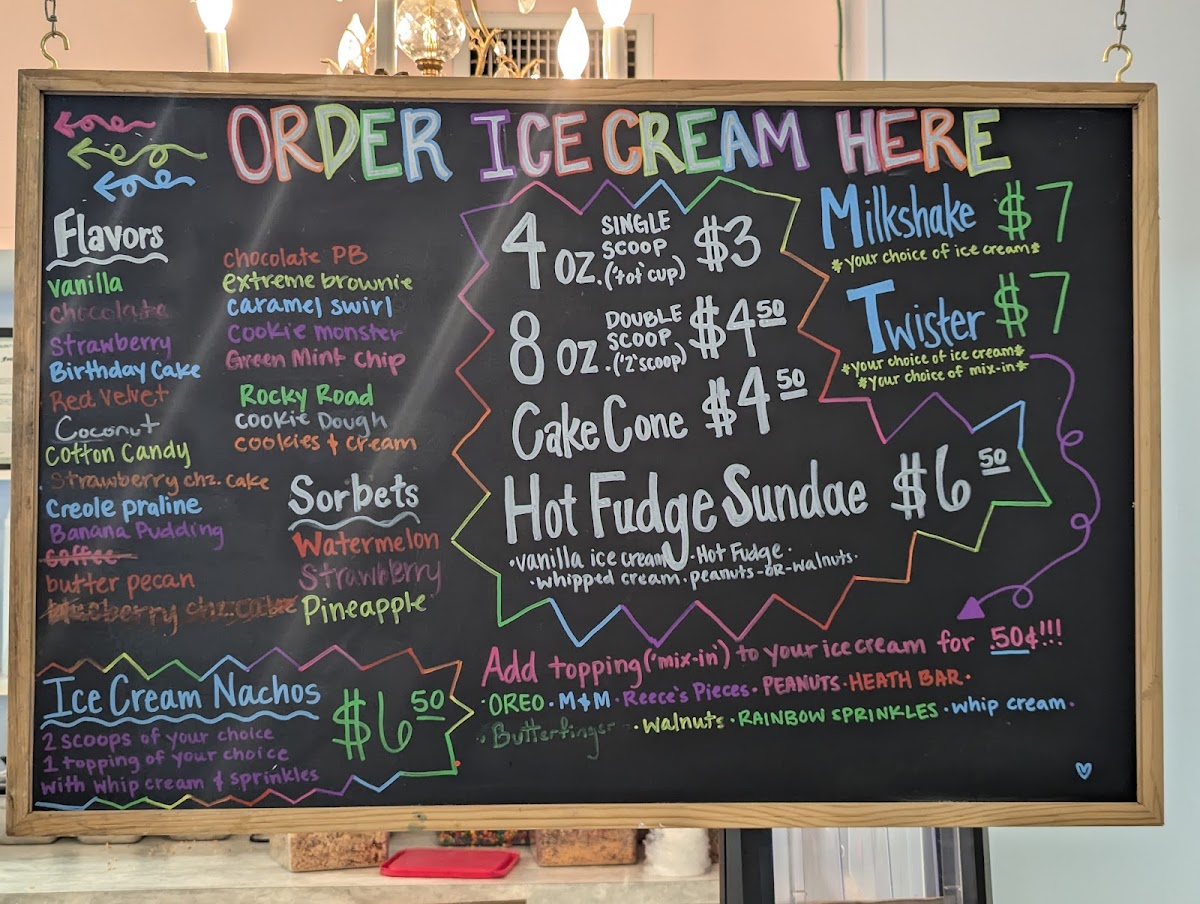 ORDER ICE CREAM HERE
Flavors
vanilla
chocolate
Strawberry
Birthday Cake
Red Velvet
Coconut
Cotton Candy
Strawberry chz. cake
Creole praline
Banana Pudding
coffee
butter pecan
Blueberry chz. cake
chocolate PB
extreme brownie
caramel swirl
cookie monster
Green Mint Chip
Rocky Road
cookie Dough
cookies & cream
Sorbets
Watermelon
Strawberry
Pineapple
Ice Cream Nachos $6 50
2 scoops of your choice
1 topping of your choice
with whip cream & sprinkles
4 oz. SINGLE SCOOP ('tot' cup) $3
8 oz. DOUBLE SCOOP ('2' scoop) $4 50
Cake Cone $4 50
Hot Fudge Sundae $6 50
·vanilla ice cream·Hot Fudge·
·whipped cream·peanuts-OR-walnuts·
Milkshake $7
*your choice of ice cream*
Twister $7
*your choice of ice cream*
*your choice of mix-in*
Add topping ('mix-in') to your ice cream for .50¢!!!
·OREO·M&M·Reece's Pieces·PEANUTS·HEATH BAR·
·Butterfinger·walnuts·RAINBOW SPRINKLES·whip cream·